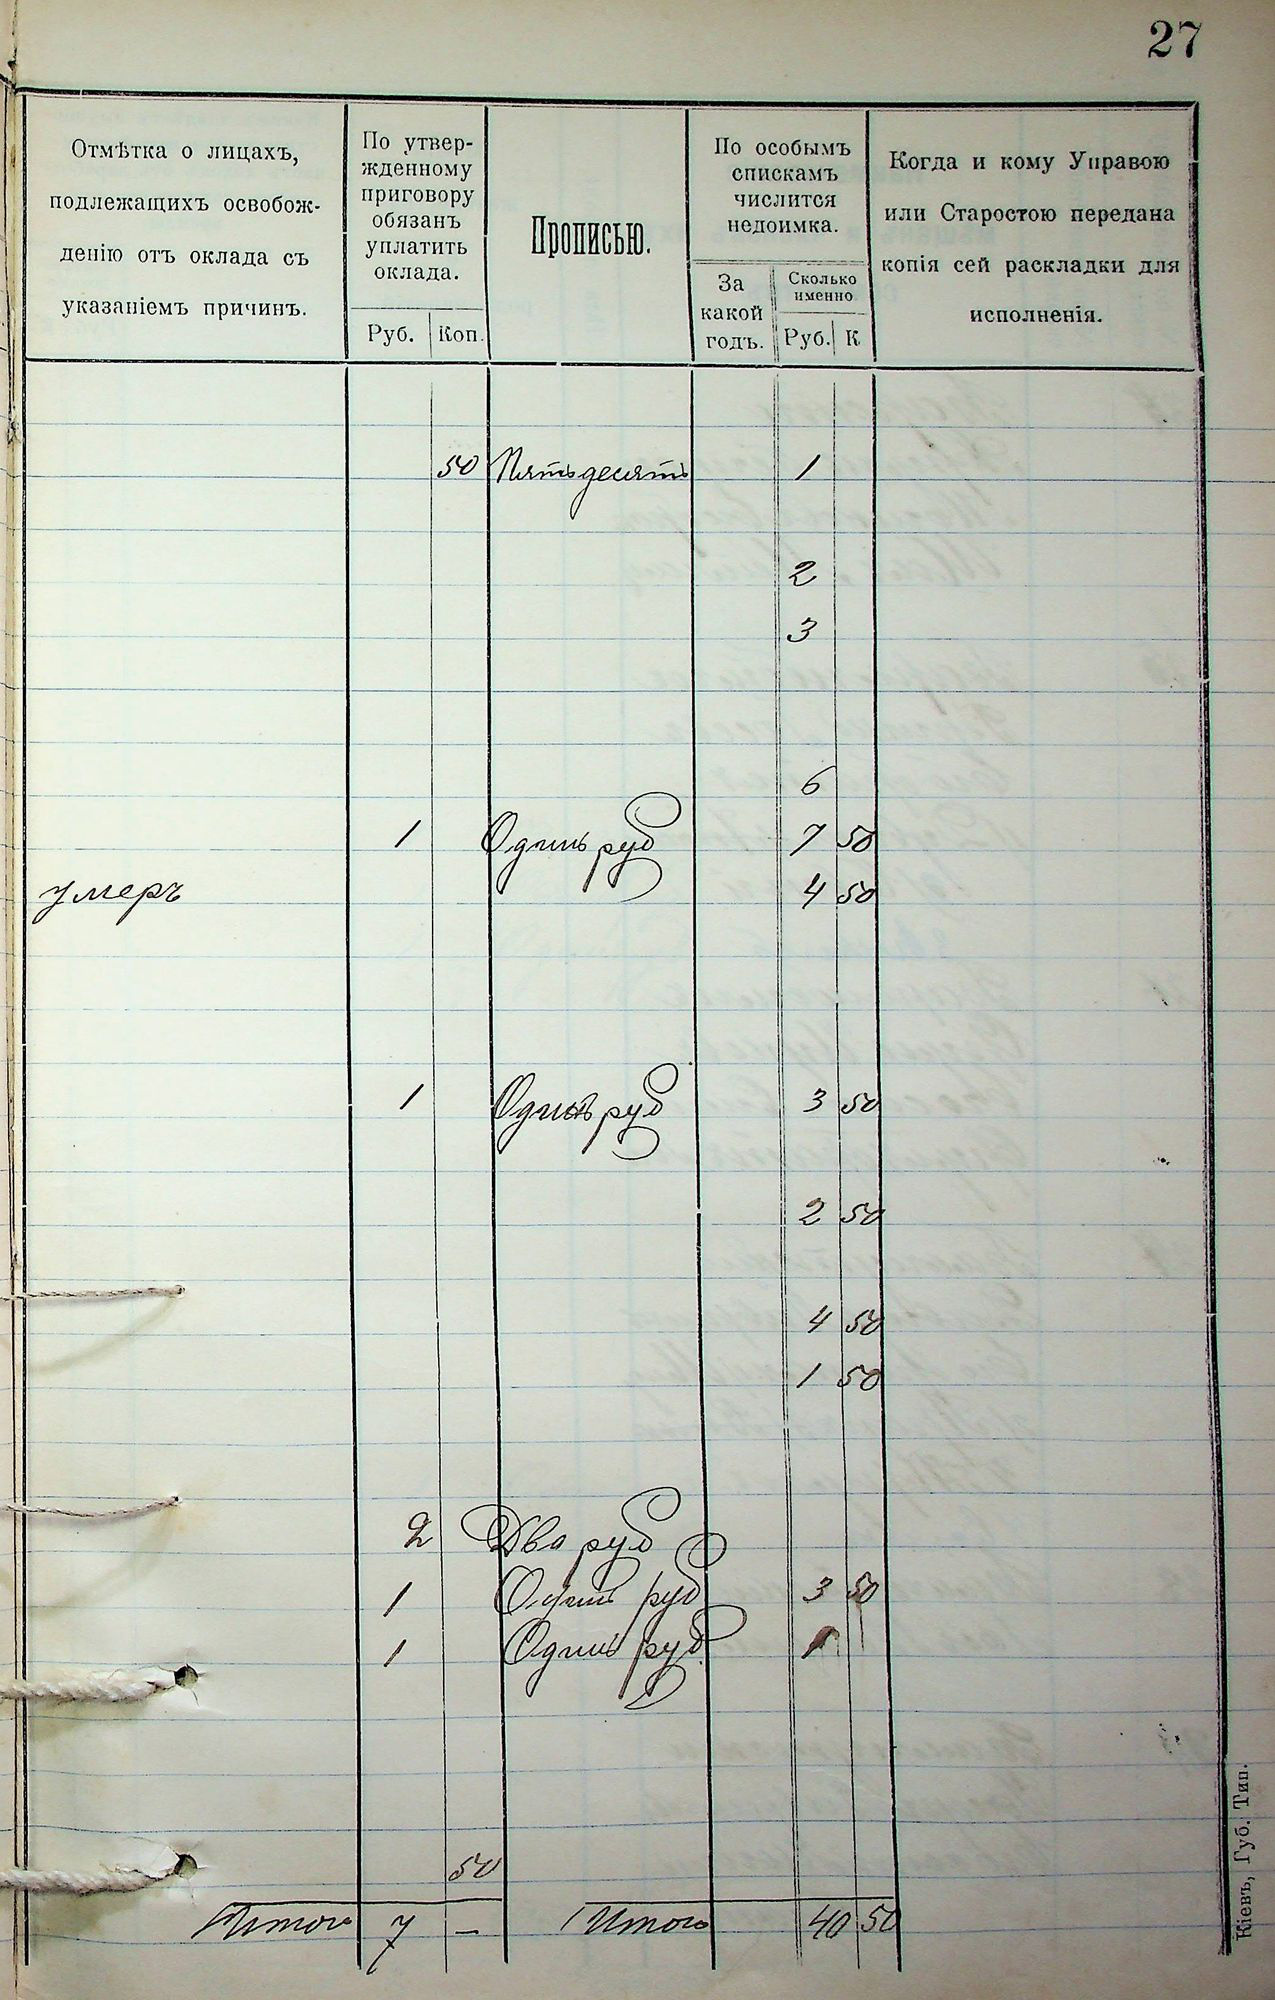 27
Отмѣтка о лицахъ,
подлежащихъ освобож-
денію отъ оклада съ
указаніемъ причинъ.
По утвер-
жденному
приговору
обязанъ
уплатить
оклада.
Руб. Коп.
Прописью.
По особымъ
спискамъ
числится
недоимка.
За
какой
годъ.
Сколько
именно
Руб. К
Когда и кому Управою
или Старостою передана
копія сей раскладки для
исполненія.
50 Пятьдесятъ 1
2
3
6
1 Одинъ руб 7 50
умеръ 4 50
1 Одинъ руб 3 50
2 50
4 50
1 50
2 Два руб
1 Одинъ руб 3 50
1 Одинъ руб. 1
50
Итого 7 — Итого 40 50
Кіевъ, Губ. Тип.